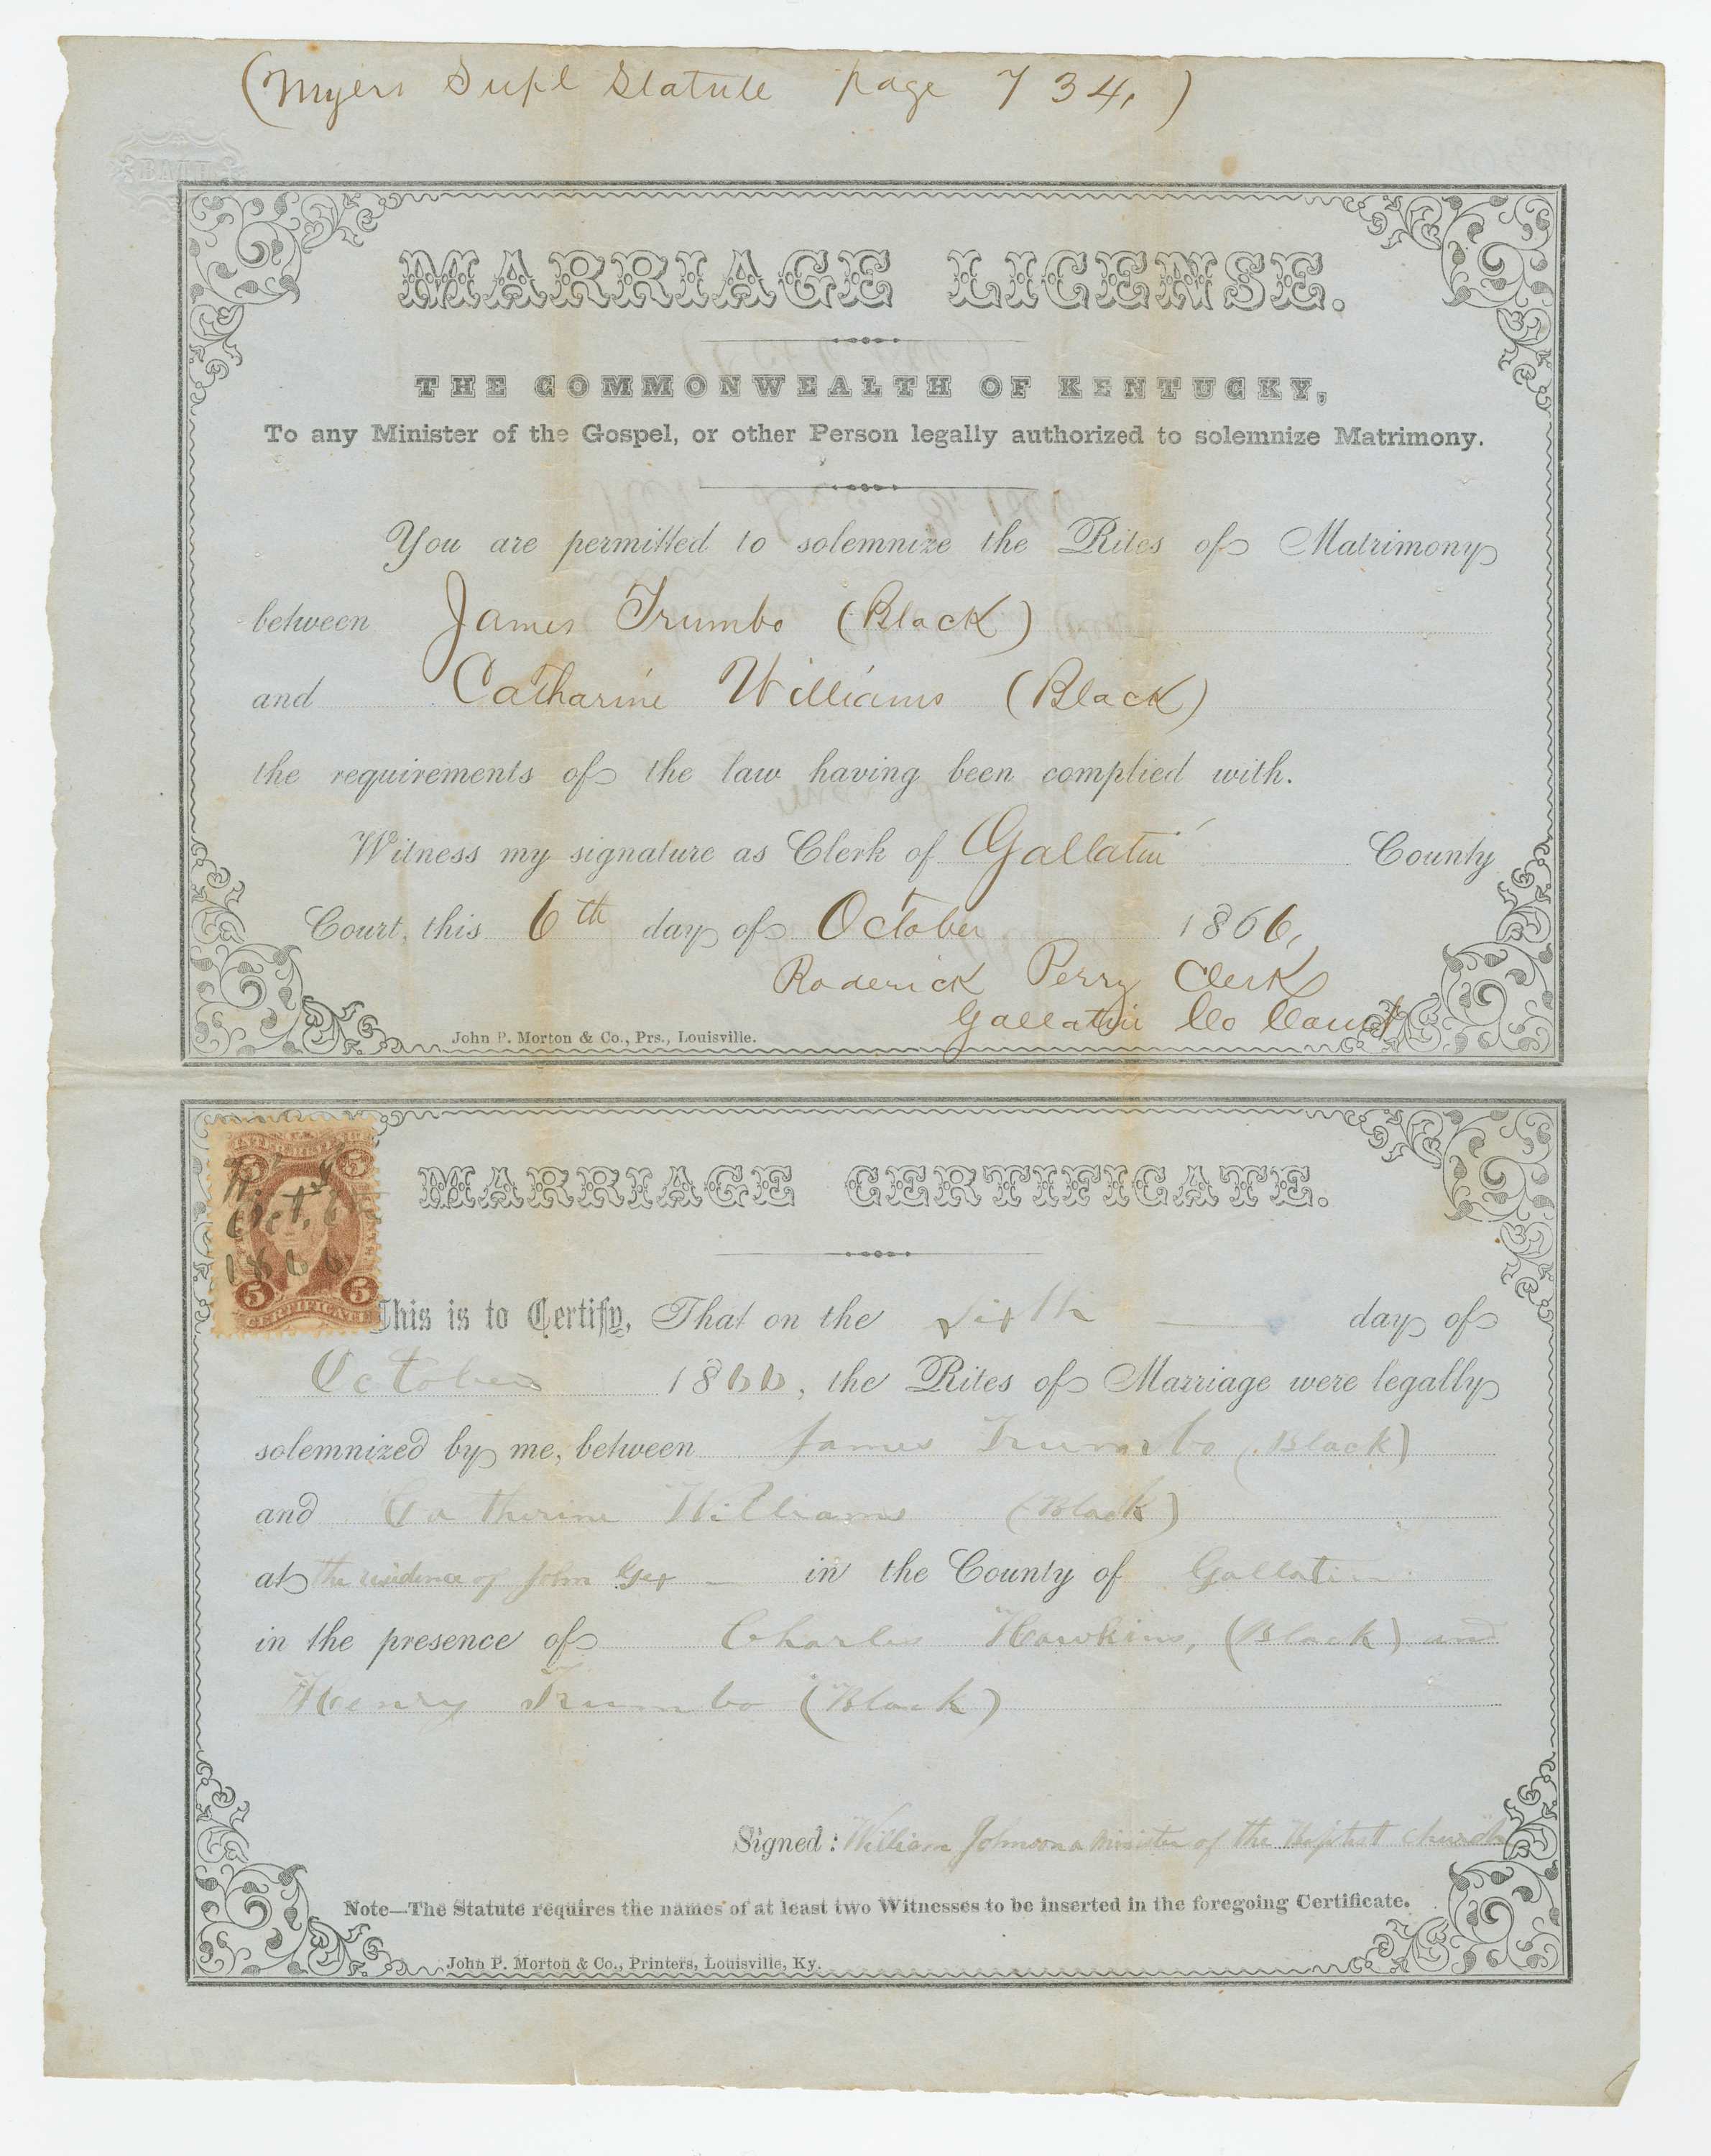 (Myers Supl Statute page 734,)
BATH
MARRIAGE LICENSE.
THE COMMONWEALTH OF KENTUCKY,
To any Minister of the Gospel, or other Person legally authorized to solemnize Matrimony.
You are permitted to solemnize the Rites of Matrimony
between James Trumbo (Black)
and Catharine Williams (Black)
the requirements of the law having been complied with.
Witness my signature as Clerk of Gallatin County
Court, this 6th day of October 1866,
Roderick Perry Clerk
Gallatin Co Court
John P. Morton & Co., Prs., Louisville.
5 5
Oct. 6
1866
5 5
CERTIFICATE
MARRIAGE CERTIFICATE.
This is to Certify, That on the sixth day of
October 1866, the Rites of Marriage were legally
solemnized by me, between James Trumbo (Black)
and Catherine Williams (Black)
at the residence of John Gex in the County of Gallatin
in the presence of Charles Hawkins, (Black) and
Henry Trumbo (Black)
Signed: William Johnson a Minister of the Baptist church
Note—The Statute requires the names of at least two Witnesses to be inserted in the foregoing Certificate.
John P. Morton & Co., Printers, Louisville, Ky.